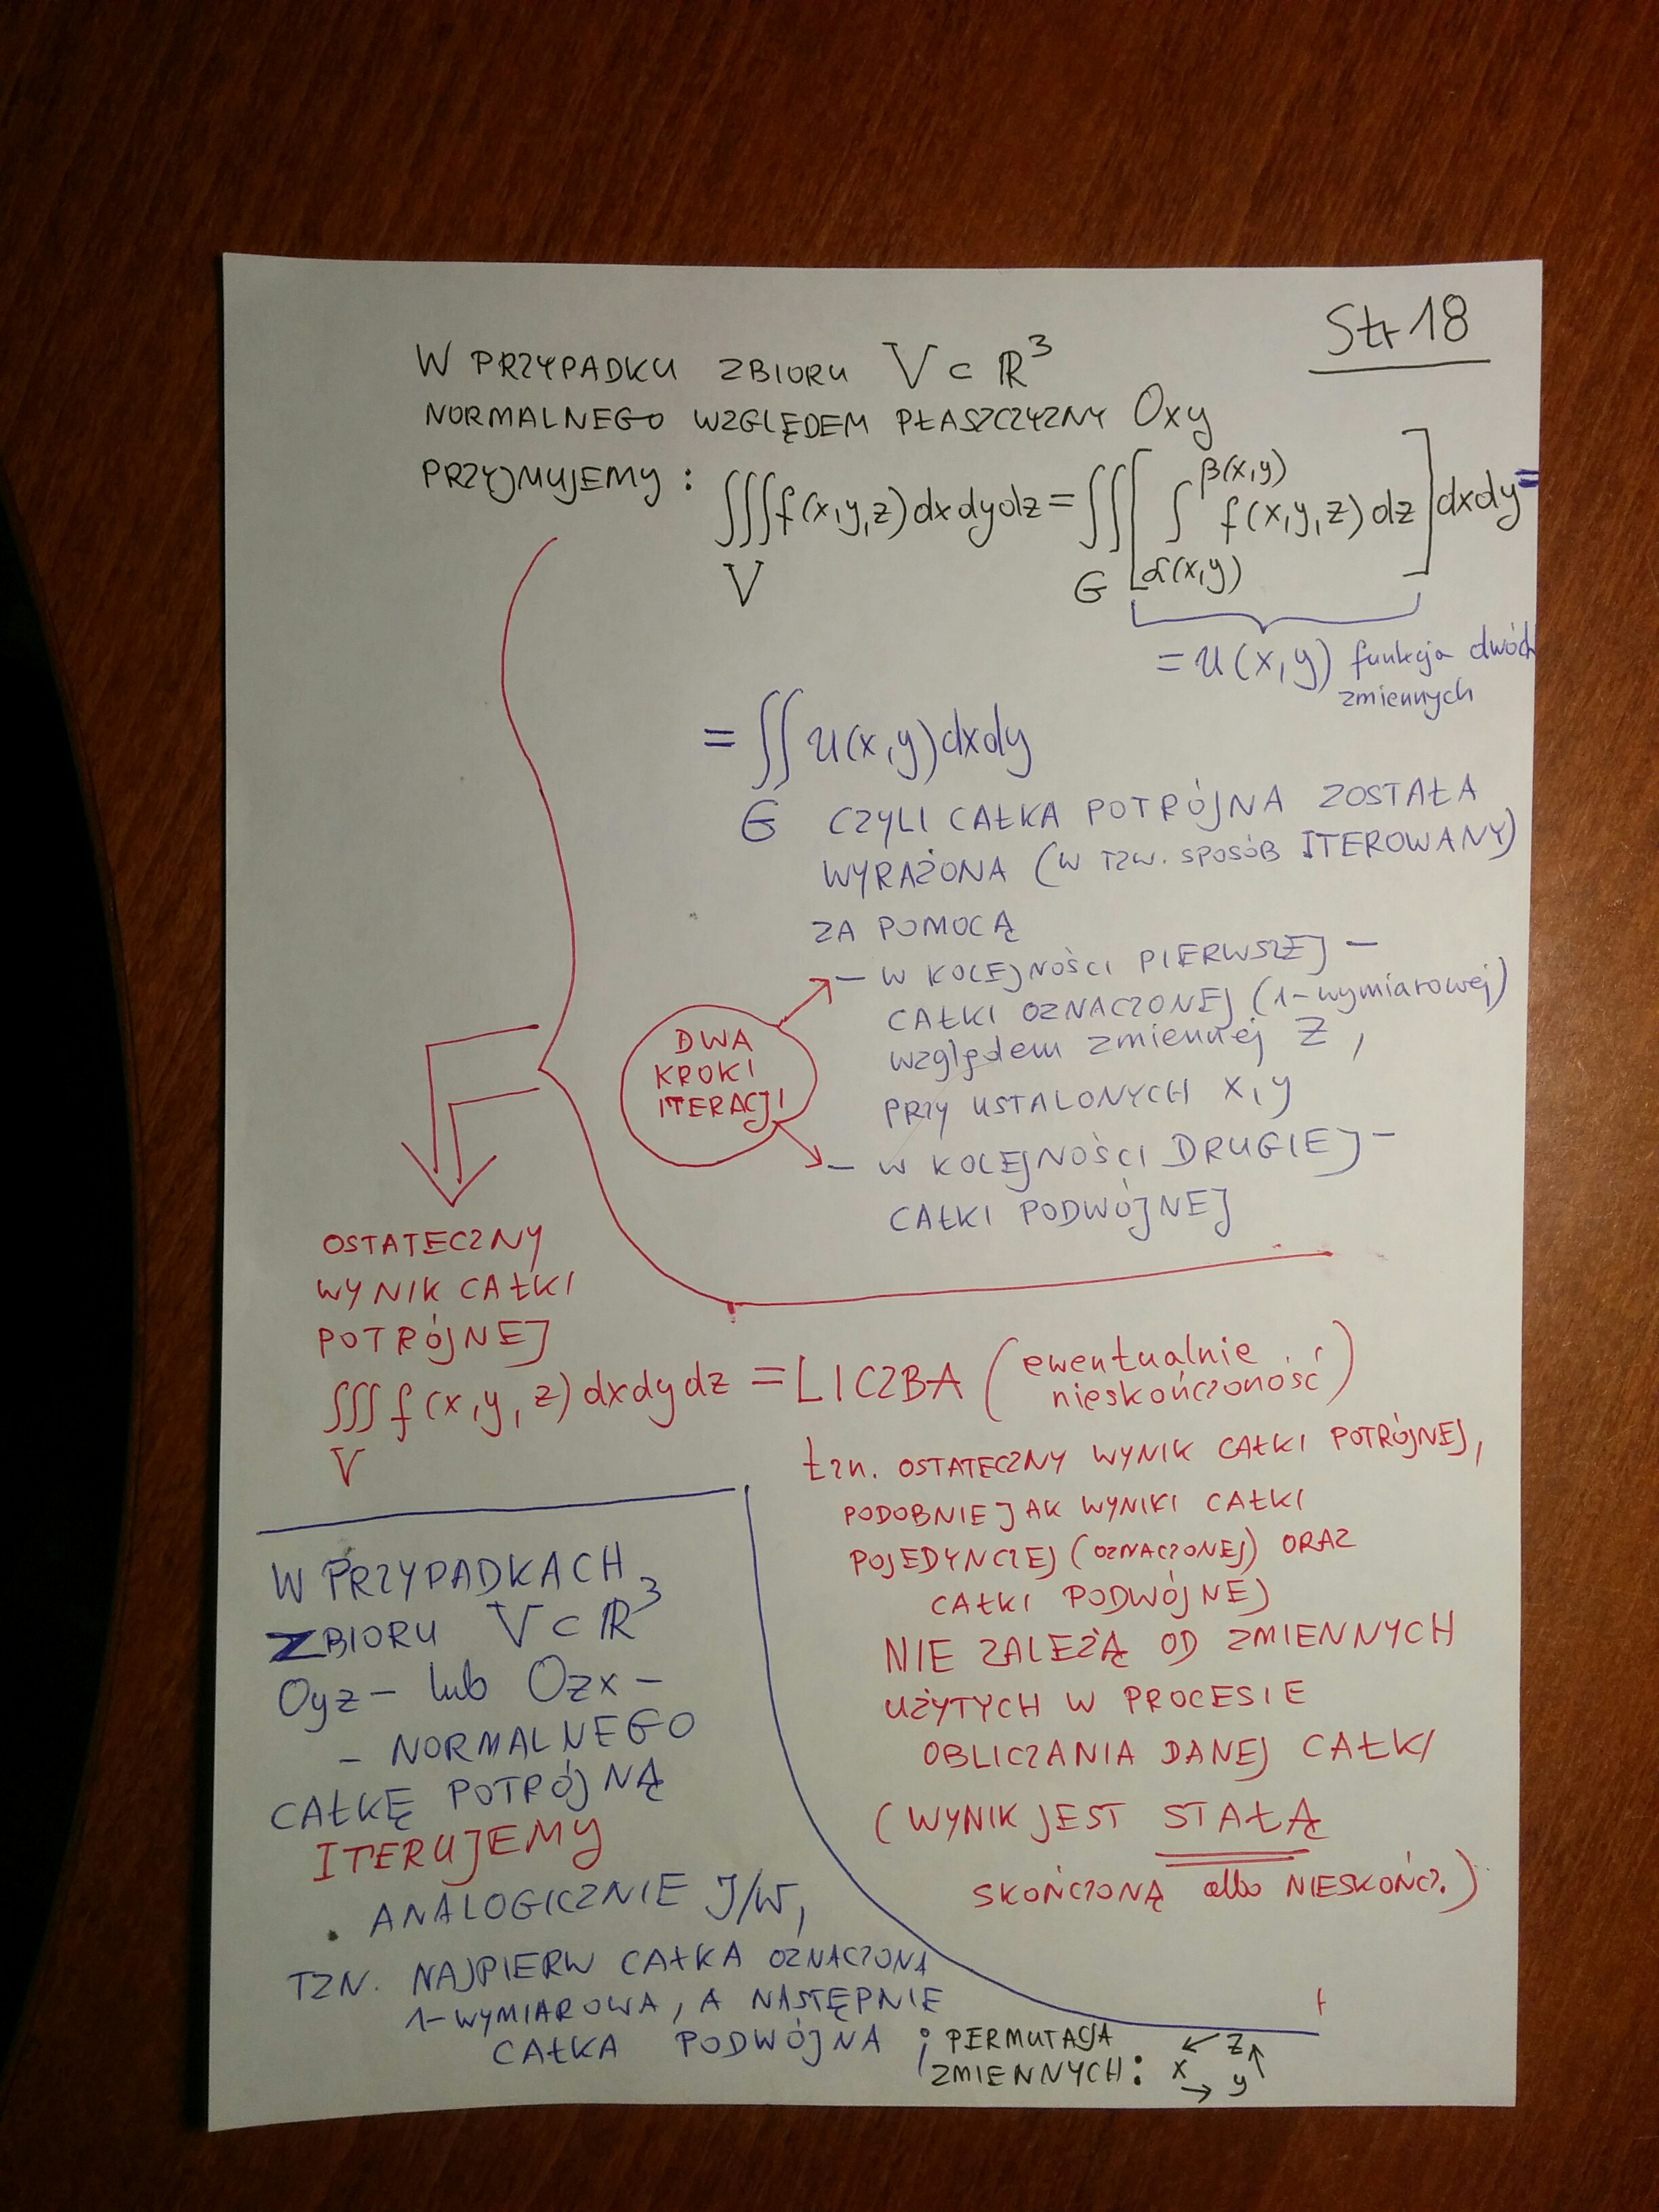 Str 18
W PRZYPADKU ZBIORU V ⊂ ℝ³
NORMALNEGO WZGLĘDEM PŁASZCZYZNY Oxy
PRZYJMUJEMY : ∭f(x,y,z)dxdydz = ∬[∫ f(x,y,z)dz]dxdy =
β(x,y)
V G α(x,y)
= u(x,y) funkcja dwóch
zmiennych
= ∬ u(x,y)dxdy
G CZYLI CAŁKA POTRÓJNA ZOSTAŁA
WYRAŻONA (W TZW. SPOSÓB ITEROWANY)
ZA POMOCĄ
– W KOLEJNOŚCI PIERWSZEJ –
CAŁKI OZNACZONEJ (1-wymiarowej)
względem zmiennej Z,
PRZY USTALONYCH X,Y
– W KOLEJNOŚCI DRUGIEJ –
CAŁKI PODWÓJNEJ
DWA
KROKI
ITERACJI
OSTATECZNY
WYNIK CAŁKI
POTRÓJNEJ
∭ f(x,y,z)dxdydz = LICZBA (ewentualnie
nieskończoność)
V
tzn. OSTATECZNY WYNIK CAŁKI POTRÓJNEJ,
PODOBNIE JAK WYNIKI CAŁKI
POJEDYNCZEJ (OZNACZONEJ) ORAZ
CAŁKI PODWÓJNEJ
NIE ZALEŻĄ OD ZMIENNYCH
UŻYTYCH W PROCESIE
OBLICZANIA DANEJ CAŁKI
(WYNIK JEST STAŁĄ
SKOŃCZONĄ albo NIESKOŃCZ.)
W PRZYPADKACH
ZBIORU V ⊂ ℝ³
Oyz – lub Ozx –
– NORMALNEGO
CAŁKĘ POTRÓJNĄ
ITERUJEMY
ANALOGICZNIE J/W,
TZN. NAJPIERW CAŁKA OZNACZONA
1-WYMIAROWA, A NASTĘPNIE
CAŁKA PODWÓJNA ; PERMUTACJA
ZMIENNYCH: x → y ↑ z ←